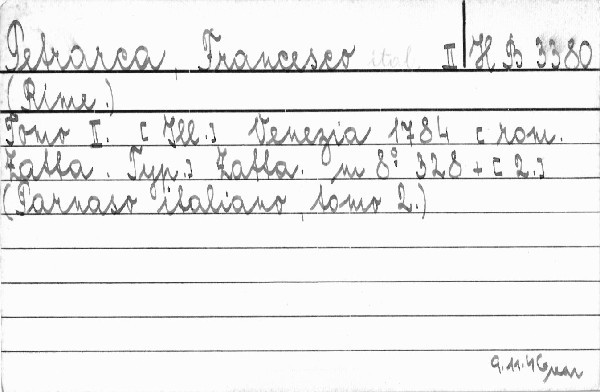 Petrarca, Francesco ital. II H B 3380
(Rime.)
Tomo II. [Ill.] Venezia 1784 [rom.
Zatta. Typ.] Zatta. m 8° 328 + [2.]
(Parnaso italiano, tomo 2.)